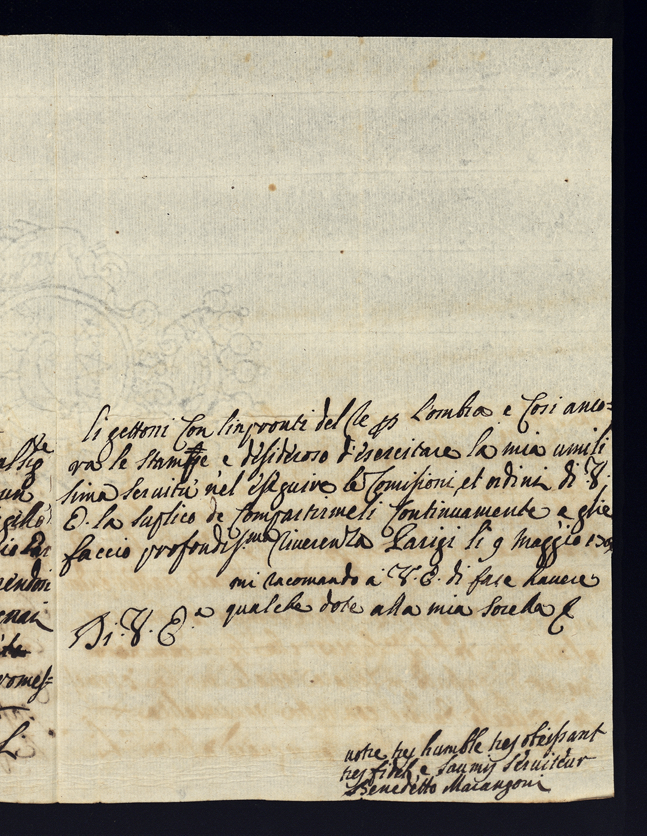 li gettoni Con linpronti del Re p l'ombra e Cosi anco=
ra le stampe e desideroso d'esercitare la mia umili
sima servitù nel eseguire le Comisioni et ordini di V.
E. la suplico de Compartirmeli Continuamente e glie
faccio profondis.ma Riverenza Parigi li 9 Maggio
mi racomando a V. E. di fare havere
qualche dote alla mia sorella
Di V. E.a
votre tres humble tres obeissant
tres fidele e soumis serviteur
Benedetto Marangoni